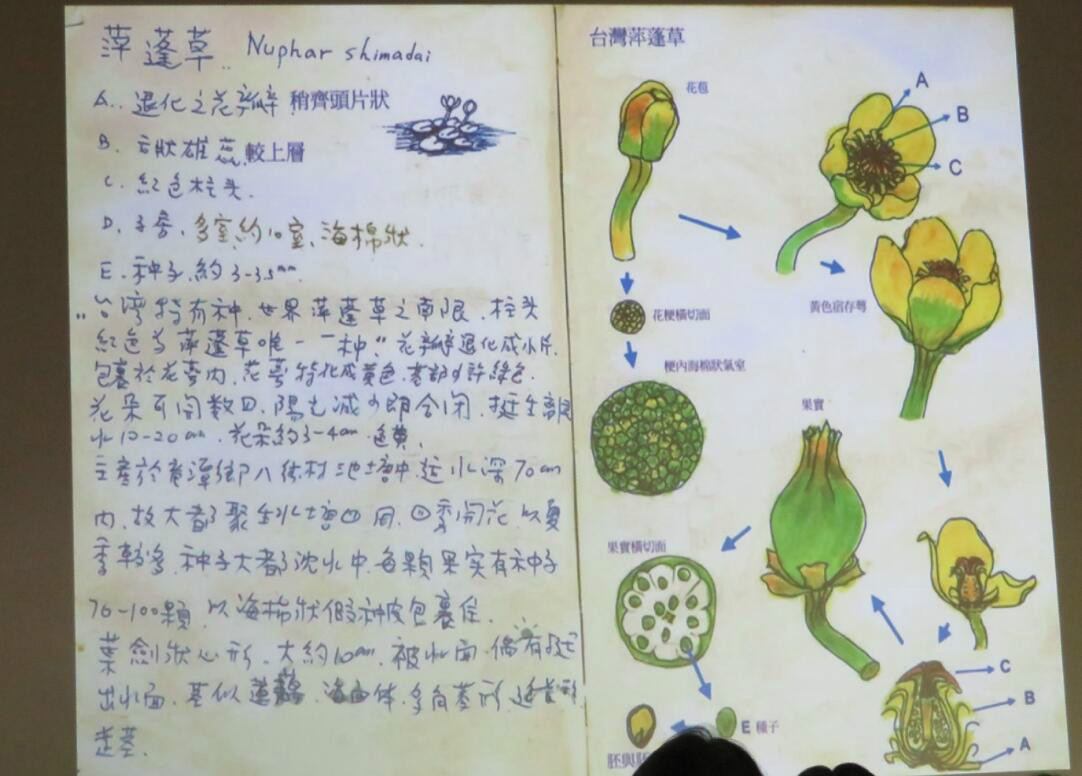 萍蓬草 Nuphar shimadai
A. 退化之花瓣 稍齊頭片狀
B. 狀雄蕊 較上層
C. 紅色柱头.
D. 子房, 多室約10室, 海棉狀.
E. 种子, 約3-3.5mm.
"台灣特有种. 世界萍蓬草之南限. 柱头
紅色為萍蓬草唯一一种" 花瓣退化成小片.
包裹於花萼內. 花萼特化成黃色. 基部少許綠色.
花朵可開數日. 陽光減少即合閉. 挺生離
水10-20cm. 花朵約3-4cm 色黃.
主產於龍潭鄉八德村池塘中. 近水深70cm
內, 故大都聚生水塘四周. 四季開花 以夏
季較多. 种子大都沈水中. 每顆果实有种子
70-100顆. 以海棉狀假种皮包裹住.
葉劍狀心形. 大約10cm. 被水面. 偶有挺
出水面. 基似蓮 多角菱形
走莖.
台灣萍蓬草
花苞
A
B
C
黃色宿存萼
花梗橫切面
梗內海棉狀氣室
果實
果實橫切面
C
B
A
E 種子
胚與